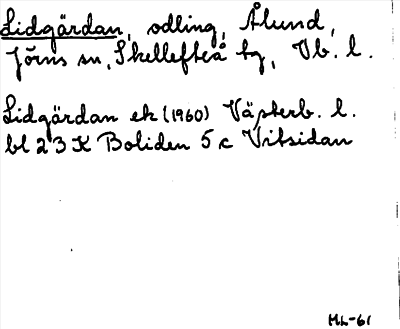 Lidgärdan, odling, Ålund,
Jörns sn, Skellefteå tg, Vb. l.
Lidgärdan ek (1960) Västerb. l.
bl 23 K Boliden 5 c Vitsidan
ML-61